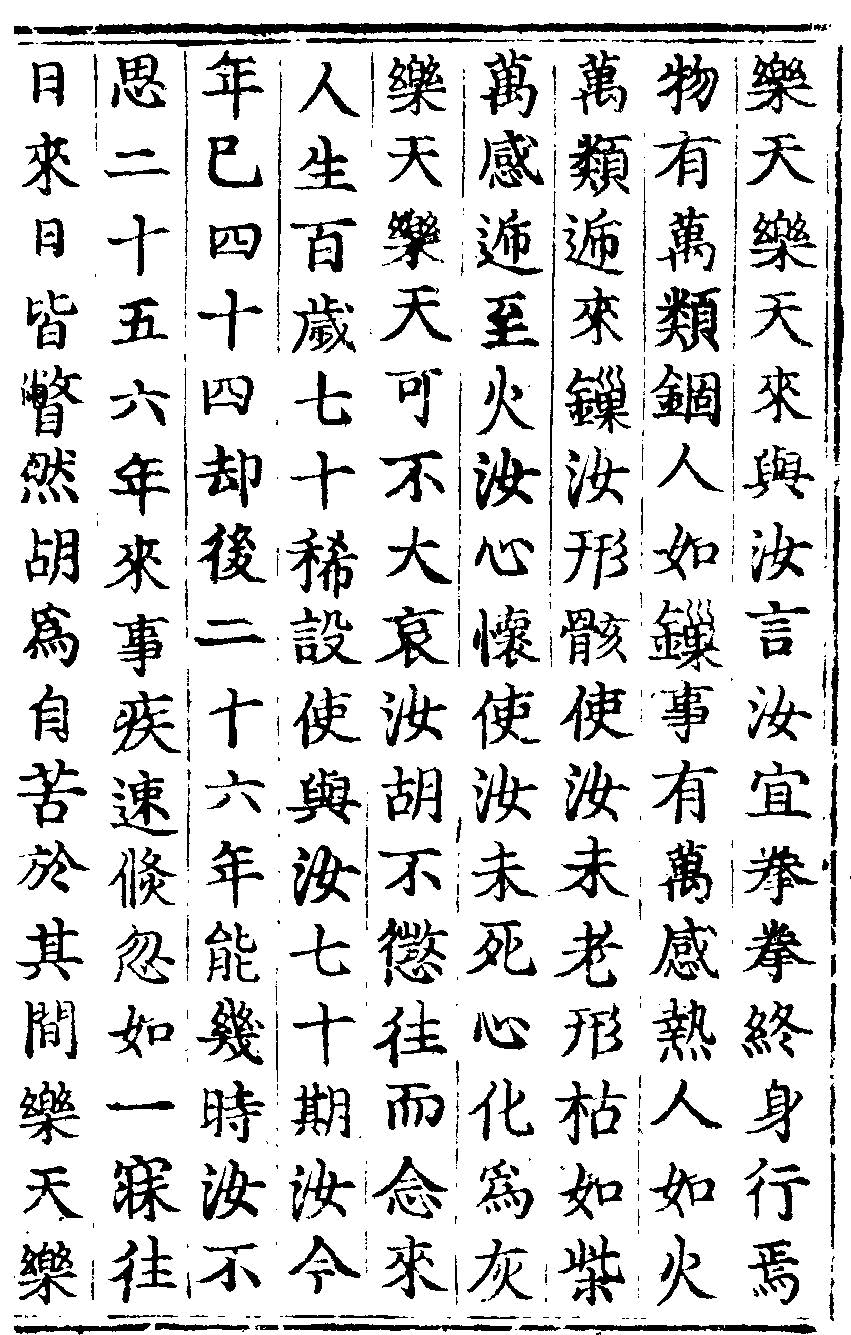 樂天樂天來與汝言汝宜拳拳終身行焉
物有萬類錮人如鏁事有萬感熱人如火
萬類遞來鏁汝形骸使汝未老形枯如柴
萬感遞至火汝心懷使汝未死心化為灰
樂天樂天可不大哀汝胡不懲往而念來
人生百歲七十稀設使與汝七十期汝今
年已四十四却後二十六年能幾時汝不
思二十五六年來事疾速倐忽如一寐往
日來日皆瞥然胡爲自苦於其間樂天樂